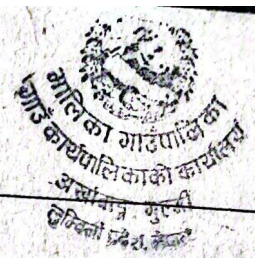 मालिका गाउँपालिका
गाउँ कार्यपालिकाको कार्यालय
अर्खाबाङ्ग, गुल्मी
लुम्बिनी प्रदेश, नेपाल